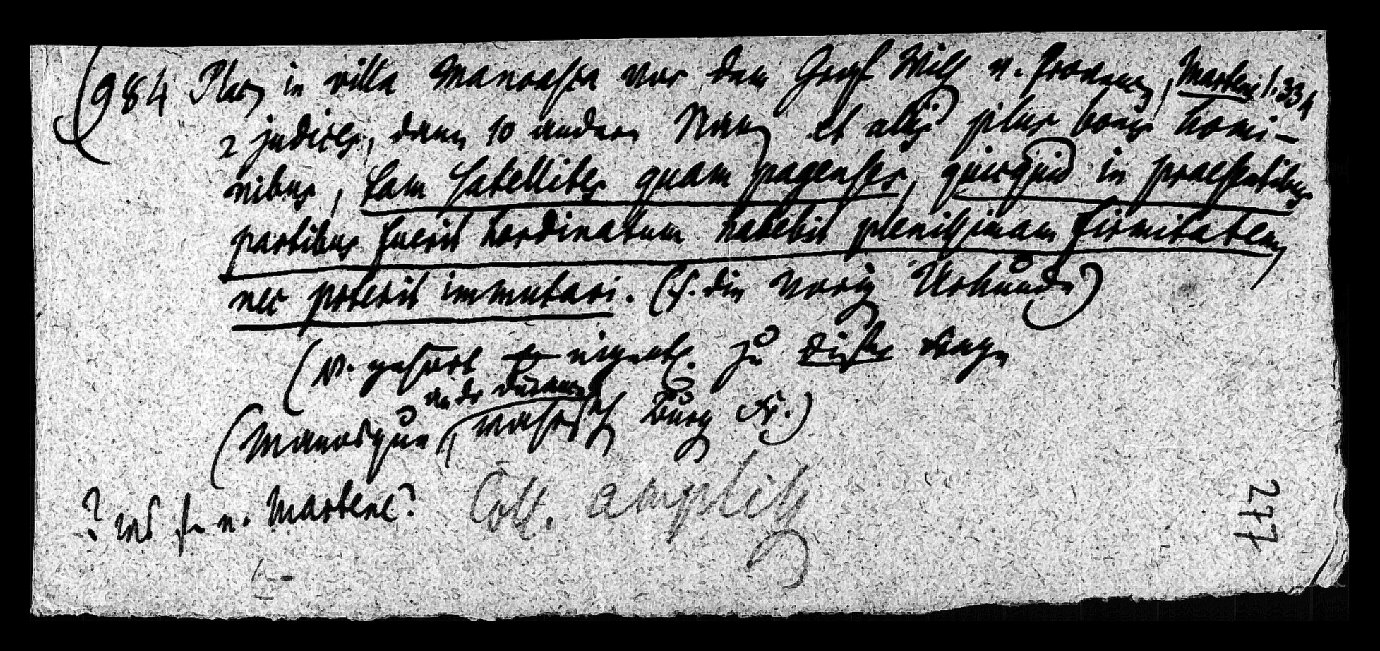 (984 Plac. in villa Manoasca vor dem Graf Wilh v. Provence, Martene I. 334
2 judices, dann 10 andere Namen et aliis plus bonis homi-
nibus, tam satellites quam pagenses, quicquid in praesentibus
partibus fuerit hordinatum habebit plenissimam firmitatem,
nec poterit immutari. (s. die vorige Urkunde)
(N. gehört zu diese
an der Durance
(Manosque, Burg
? wo v. Martene?
Coll. ampliss
277